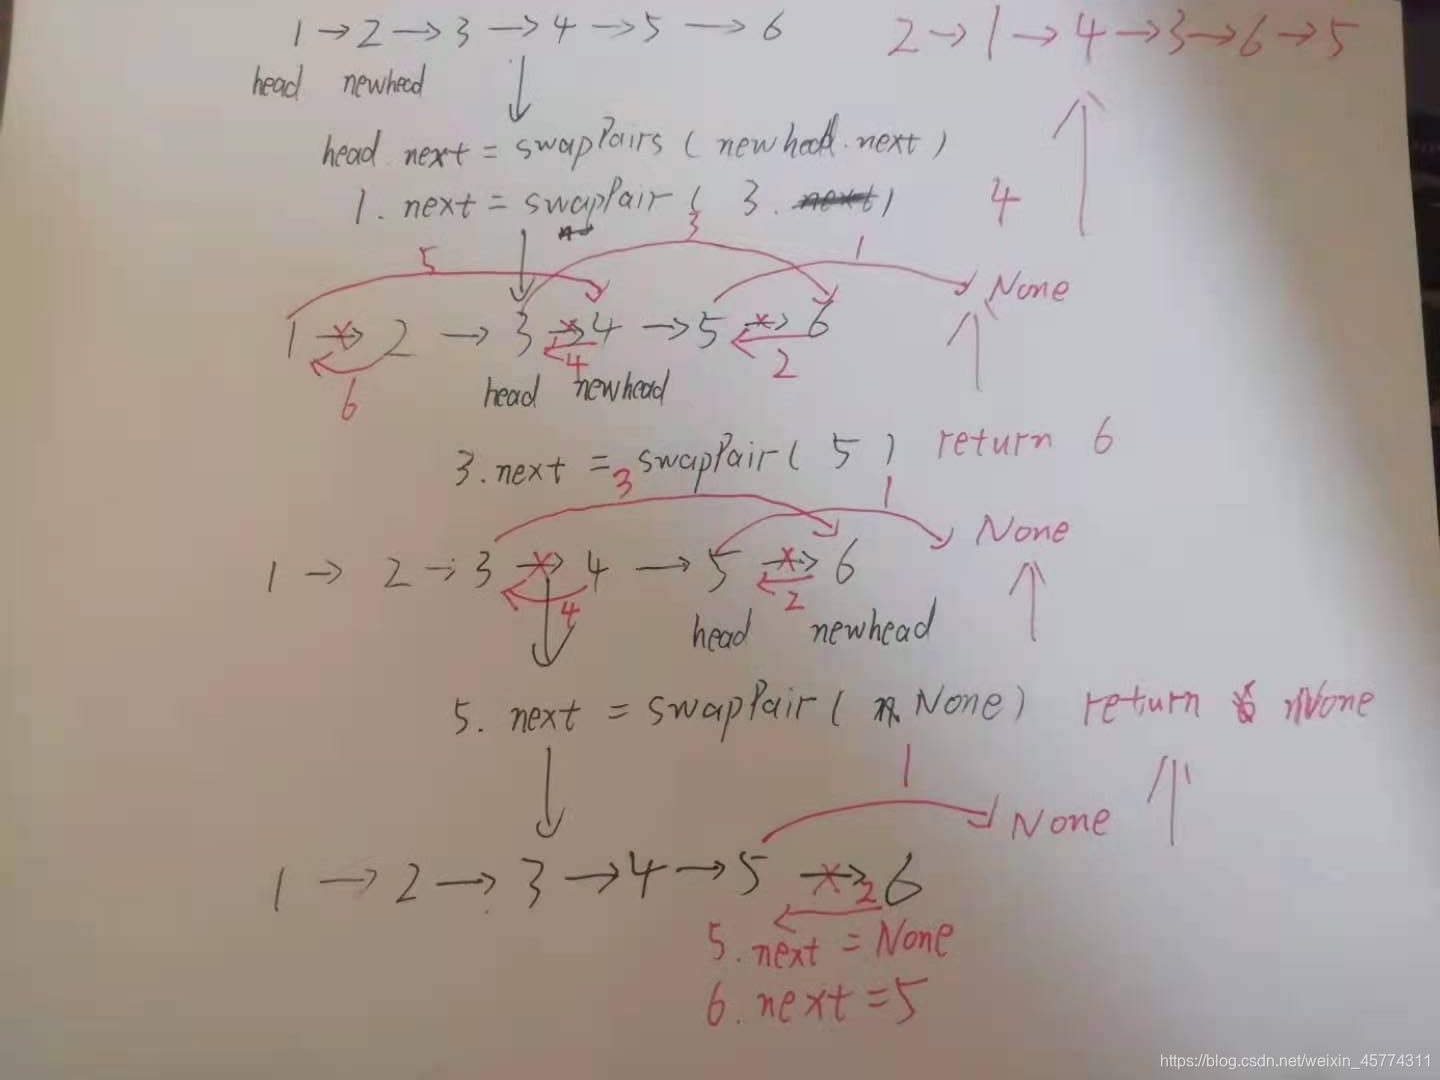 1 → 2 → 3 → 4 → 5 → 6
2 → 1 → 4 → 3 → 6 → 5
head newhead
head next = swapPairs ( newhead.next )
1. next = swapPair ( 3. next )
4
3
5
1
None
1 → 2 → 3 → 4 → 5 → 6
6
4
2
head newhead
3.next = swapPair ( 5 ) return 6
3
1
None
1 → 2 → 3 → 4 → 5 → 6
4
2
head newhead
5. next = swapPair ( None ) return None
1
None
1 → 2 → 3 → 4 → 5 → 6
2
5. next = None
6. next = 5
https://blog.csdn.net/weixin_45774311